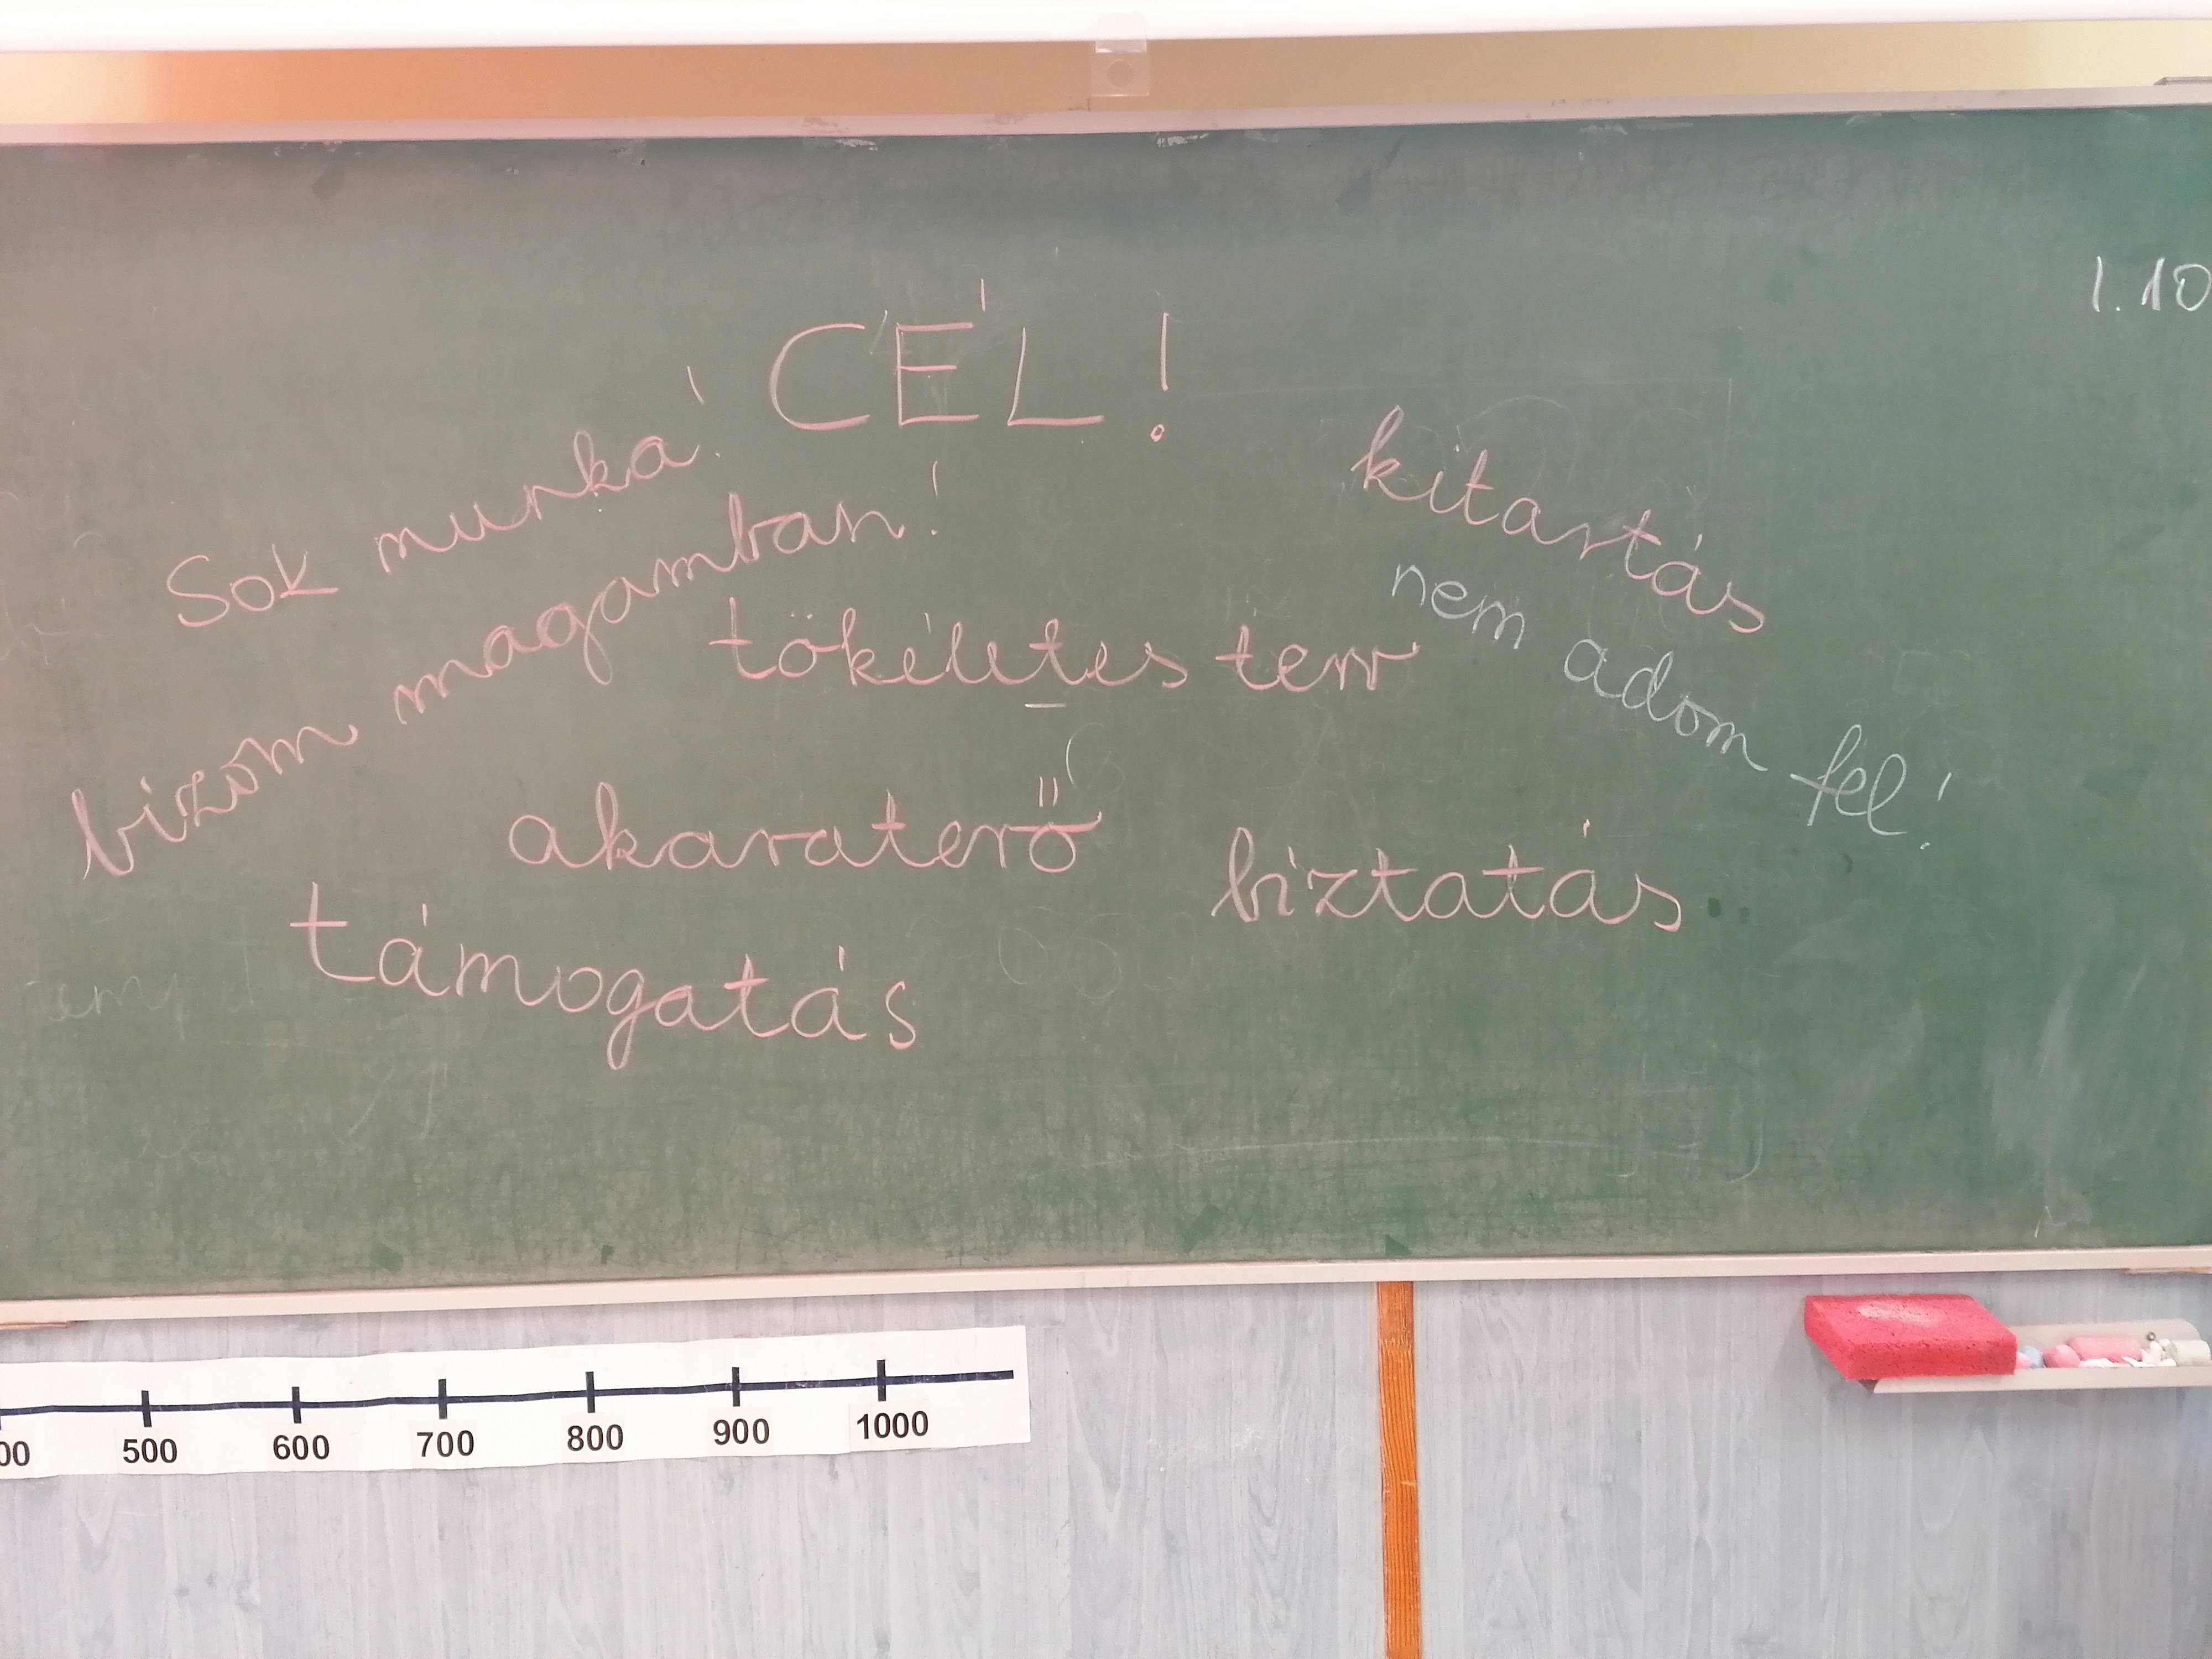 1.10
CÉL!
Sok munka!
bizom magamban!
kitartás
nem adom fel!
tökéletes terv
akaraterő
biztatás
támogatás
00 500 600 700 800 900 1000